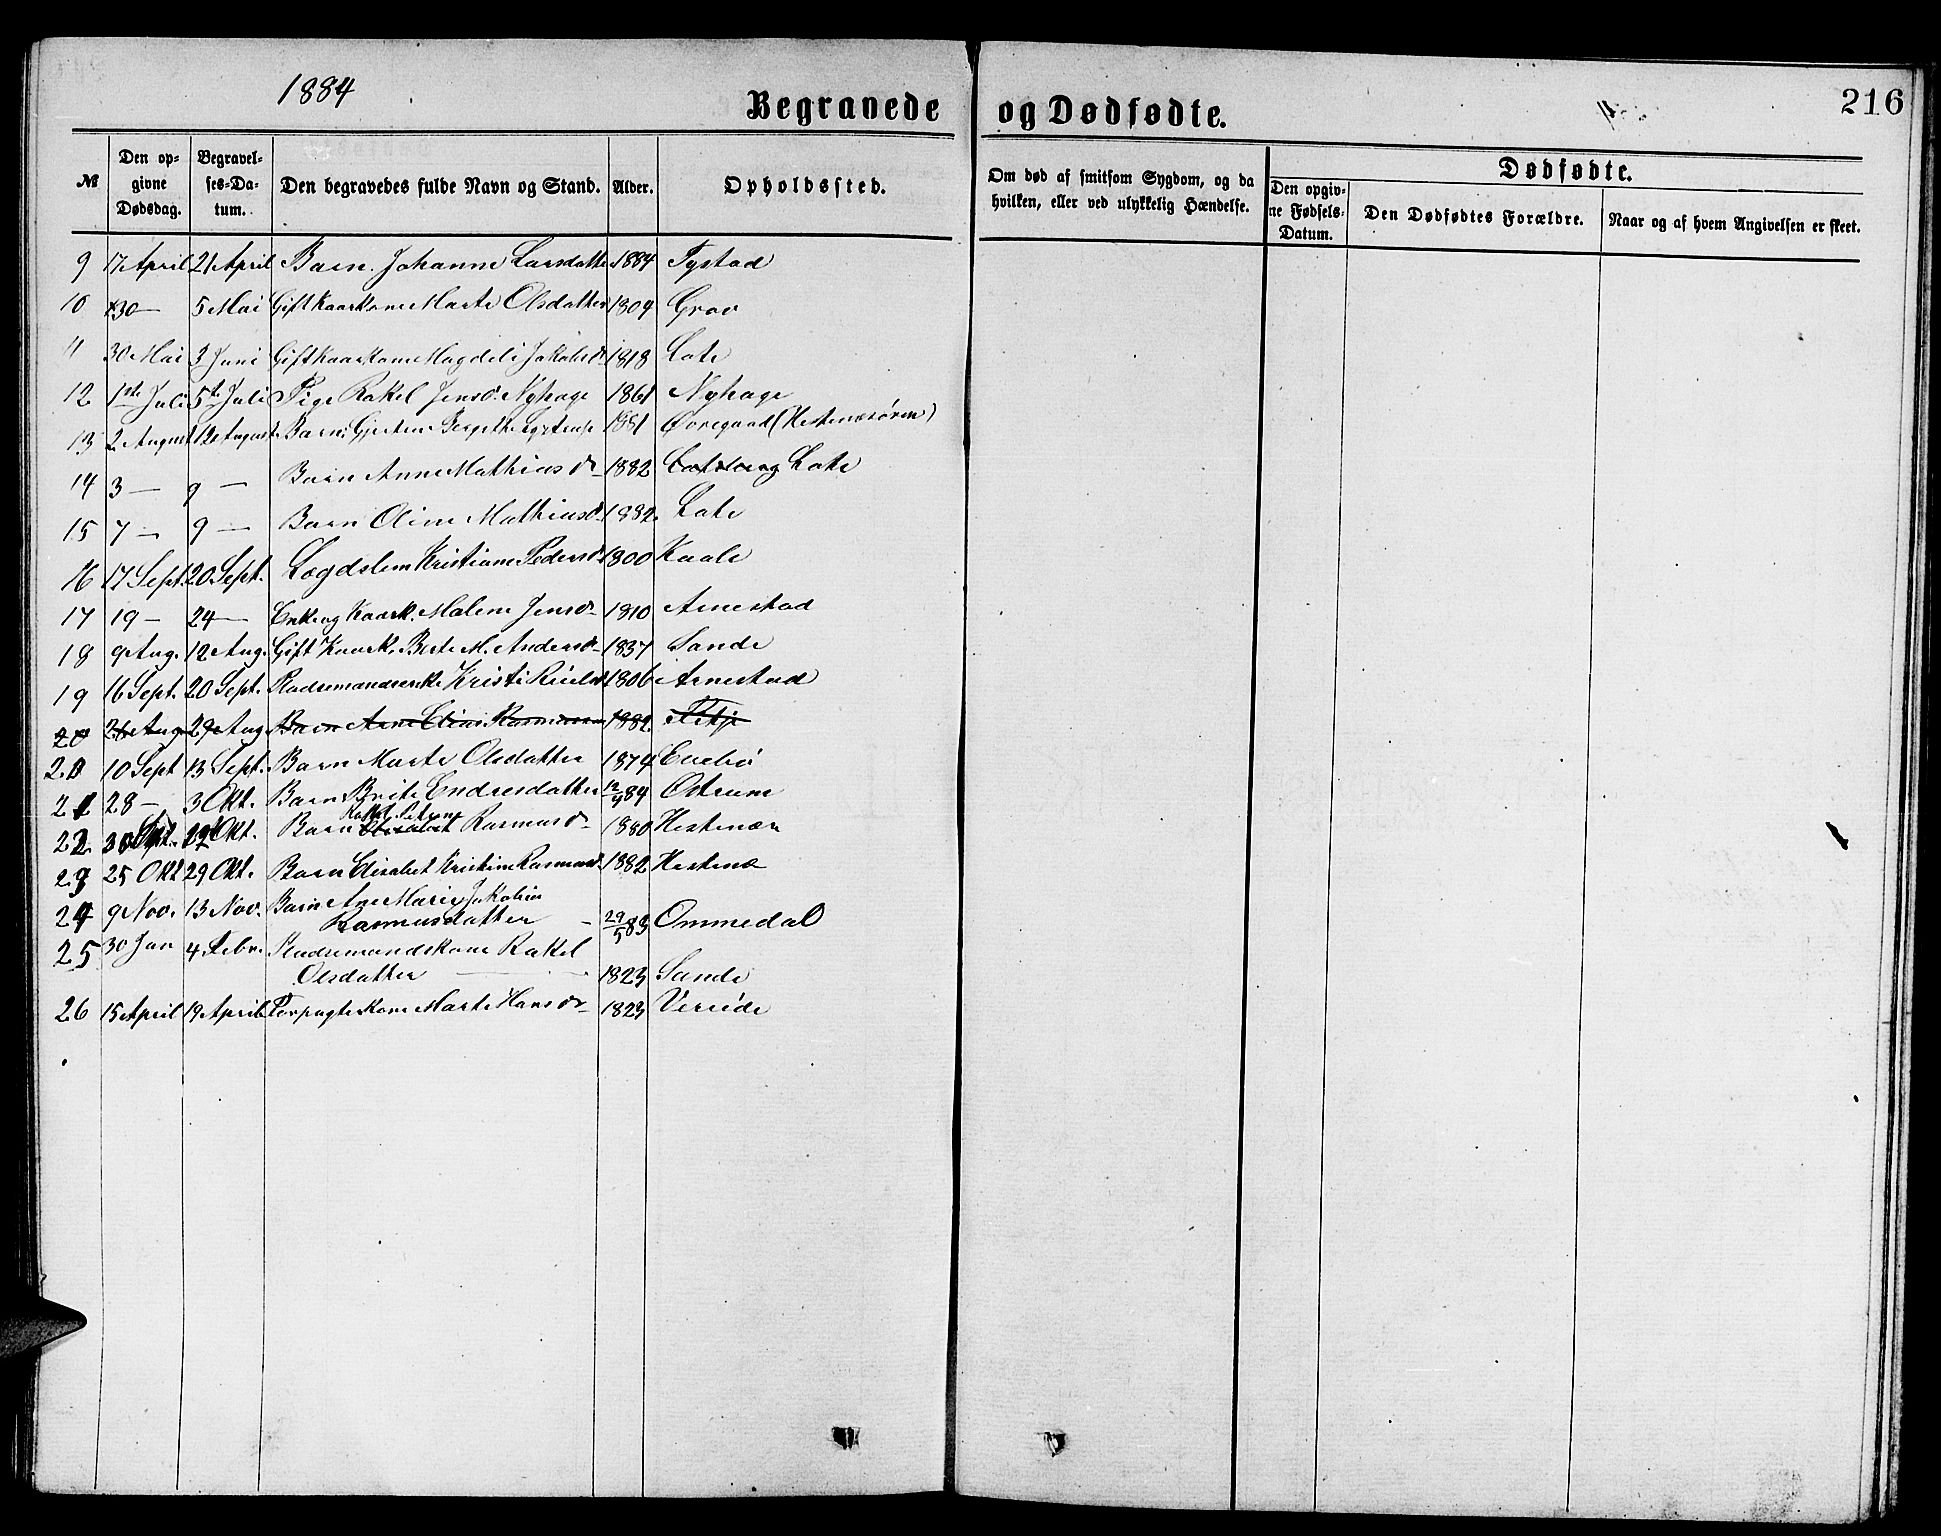 1884
Begravede og Dødfødte.
216
№ Den opgivne Dødsdag. Begravelses-Datum. Den begravedes fulde Navn og Stand. Alder. Opholdssted. Om død af smitsom Sygdom, og da hvilken, eller ved ulykkelig Hændelse. Dødfødte. Den opgivne Fødsels-Datum. Den Dødfødtes Forældre. Naar og af hvem Angivelsen er skeet.
9 17 April 21 April Barn Johanne Larsdatter 1884 Tystad
10 30 — 5 Mai Gift Kaarkone Marte Olsdatter 1809 Grov
11 30 Mai 3 Juni Gift Kaarkone Magdeli Jakobsd. 1818 Lote
12 1ste Juli 5te Juli Pige Rakel Jensd. Nyhage 1861 Nyhage
13 2 August 12 August Barn 1881 Øvregaard (Hestenesøren)
14 3 — 9 — Barn Anne Mathiasdr 1882 Lote
15 7 — 9 — Barn Oline Mathiasd. 1882. Lote
16 17 Sept. 20 Sept. Lægdslem Kristiane Pedersd. 1800 Kaale
17 19 — 24 — Enke og Kaark. Malene Jensdr 1810 Arnestad
18 9 Aug. 12 Aug. Gift Kaark. Berte M. Andersd. 1837 Sande
19 16 Sept. 20 Sept. Kristi 1806 Arnestad
20 26 Aug 29 Aug. Barn Ane Eline Rasmussen 1882.
20 10 Sept 13 Sept. Barn Marte Olsdatter 1874 Evebø
21 28 — 3 Okt. Barn Brite Endresdatter 12/9 84 Ostrum
22 30 Okt. Barn Rakel Petrine Rasmusdr 1880 Hestenæs
23 25 Okt 29 Okt. Barn Elisabet Kristine Rasmusd. 1882 Hestenæ
24 9 Nov. 13 Nov. Barn Ane Marie Jakobine
Rasmusdatter — 29/5 83 Ommedal
25 30 Jan 4 Febr. Pladsemandskone Rakel
Olsdatter — 1823 Sande
26 15 April 19 April Forpagterkone Marte Hansdr 1823 Vereide